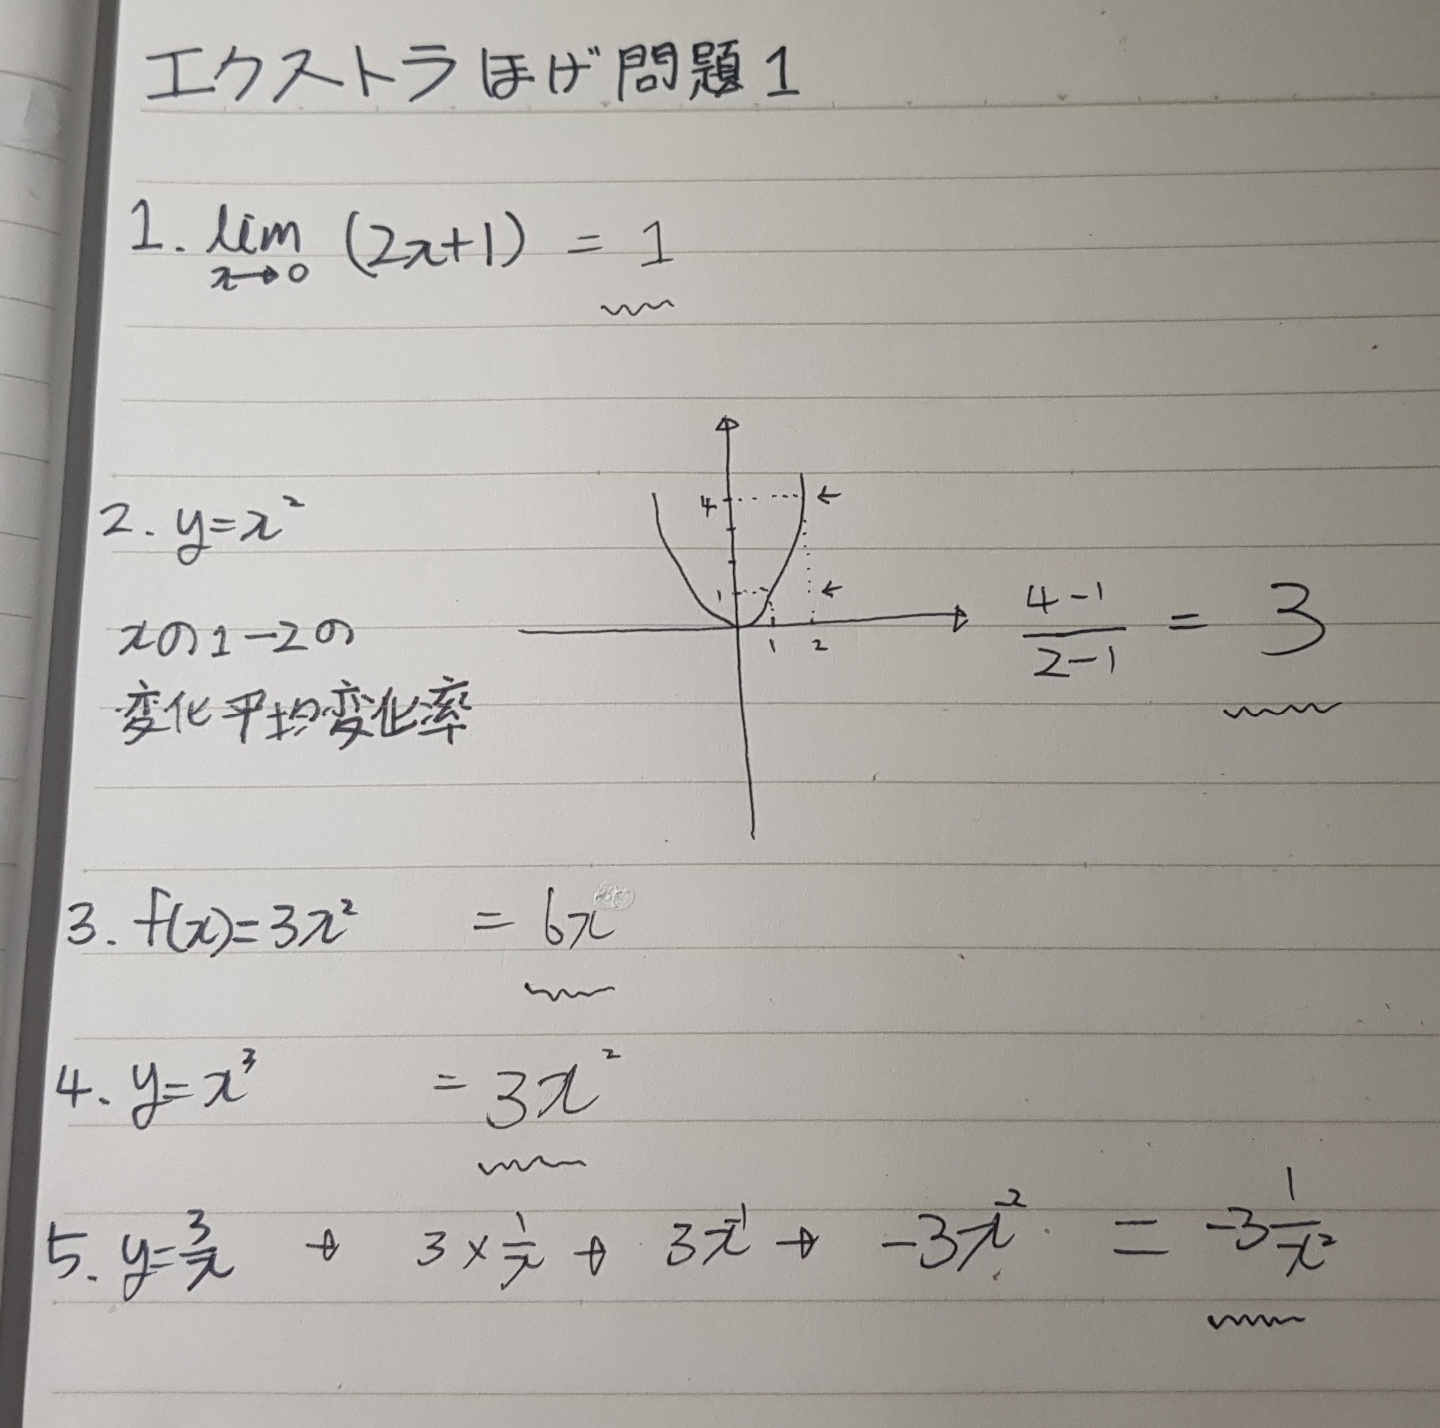 エクストラほげ問題1
1. lim (2x+1) = 1
x→0
2. y=x²
4
1
1 2
xの1-2の
変化平均変化率
(4-1)/(2-1) = 3
3. f(x)=3x² = 6x
4. y=x³ = 3x²
5. y=3/x → 3×1/x → 3x⁻¹ → -3x⁻² = -3 1/x²